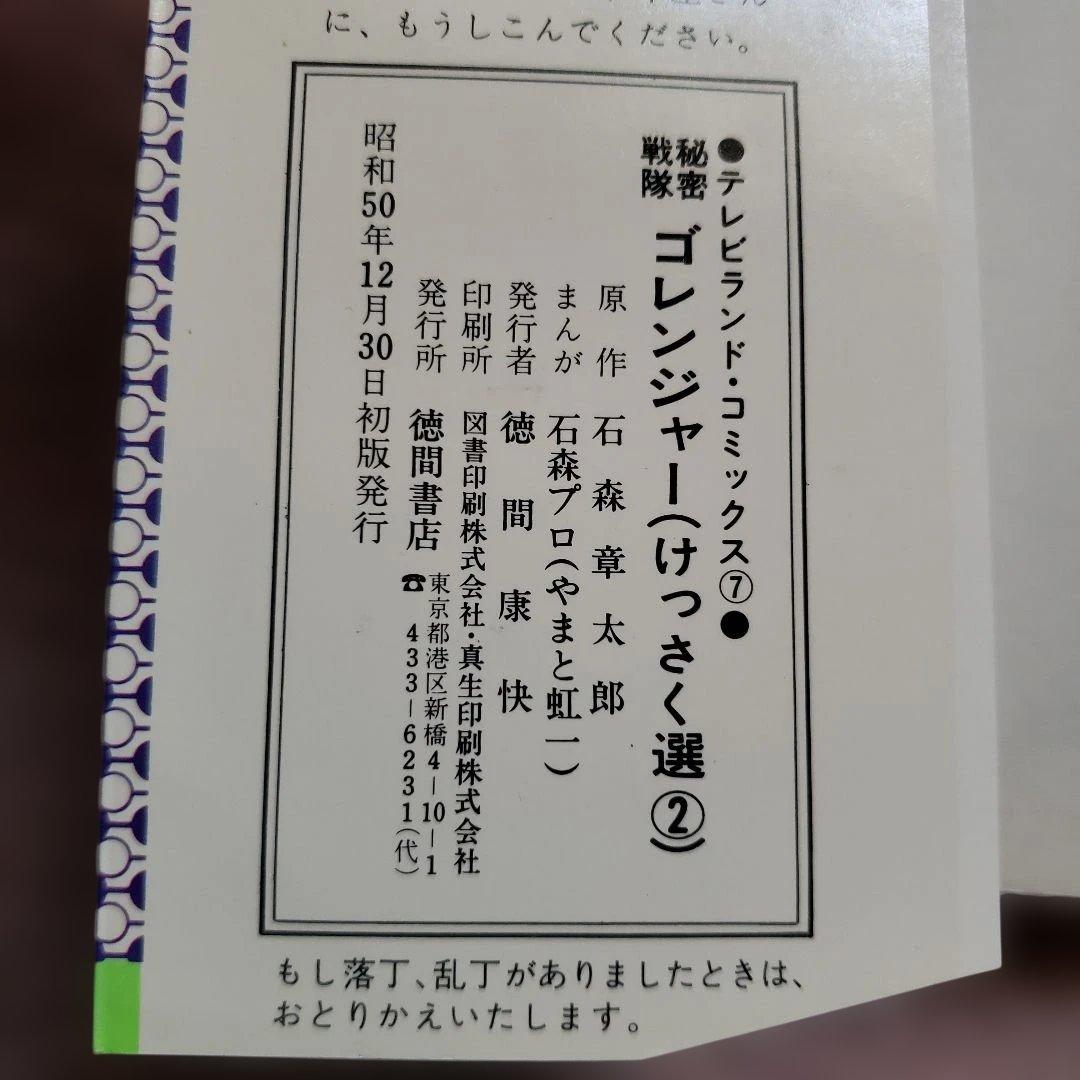 に、もうしこんでください。
●テレビランド・コミックス⑦●
秘密
戦隊
ゴレンジャー(けっさく選②)
原作 石森章太郎
まんが 石森プロ(やまと虹一)
発行者 徳間康快
印刷所 図書印刷株式会社・真生印刷株式会社
発行所 徳間書店
東京都港区新橋4-10-1
☎ 433-6231(代)
昭和50年12月30日初版発行
もし落丁、乱丁がありましたときは、
おとりかえいたします。